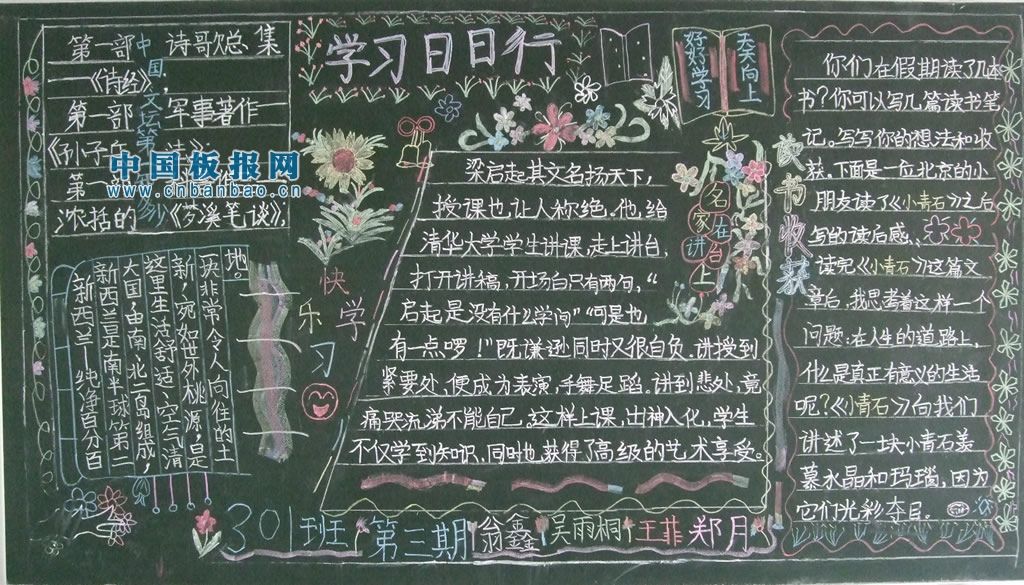 学习日日行
好好学习
天天向上
第一部
诗歌总集
—《诗经》;
第一部
军事著作—
《孙子兵
第一
沈括的
《梦溪笔谈》;
中国
文坛第
中国板报网
www.cnbanbao.cn
新西兰—纯净百分百
新西兰是南半球第二
大国,由南、北二岛组成,
这里生活舒适、空气清
新,宛如世外桃源,是
一块非常令人向往的土
地
快乐学习
名家在讲台上
梁启起其文名扬天下,
授课也让人称绝。他,给
清华大学学生讲课,走上讲台,
打开讲稿,开场白只有两句,“
启起是没有什么学问”“可是也
有一点啰!”既谦逊同时又很自负。讲授到
紧要处、便成为表演,手舞足蹈。讲到悲处,竟
痛哭流涕不能自己。这样上课,出神入化,学生
不仅学到知识、同时也获得了高级的艺术享受。
读书收获
你们在假期读了几本
书?你可以写几篇读书笔
记。写写你的想法和收
获。下面是一位北京的小
朋友读了《小青石》之后
写的读后感、
读完《小青石》这篇文
章后,我思考着这样一个
问题:在人生的道路上,
什么是真正有意义的生活
呢?《小青石》向我们
讲述了一块小青石羡
慕水晶和玛瑙,因为
它们光彩夺目。
301班
第三期
翁鑫
吴雨桐
王菲
郑月